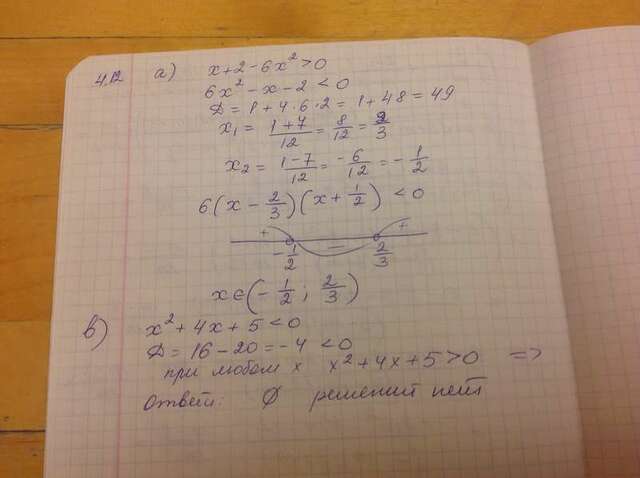 4.12 а) x+2-6x²>0
6x²-x-2<0
D=1+4·6·2=1+48=49
x₁=(1+7)/12=8/12=2/3
x₂=(1-7)/12=-6/12=-1/2
6(x-2/3)(x+1/2)<0
+ − +
-1/2 2/3
x∈(-1/2; 2/3)
в) x²+4x+5<0
D=16-20=-4<0
при любом x x²+4x+5>0 =>
ответ: Ø решений нет